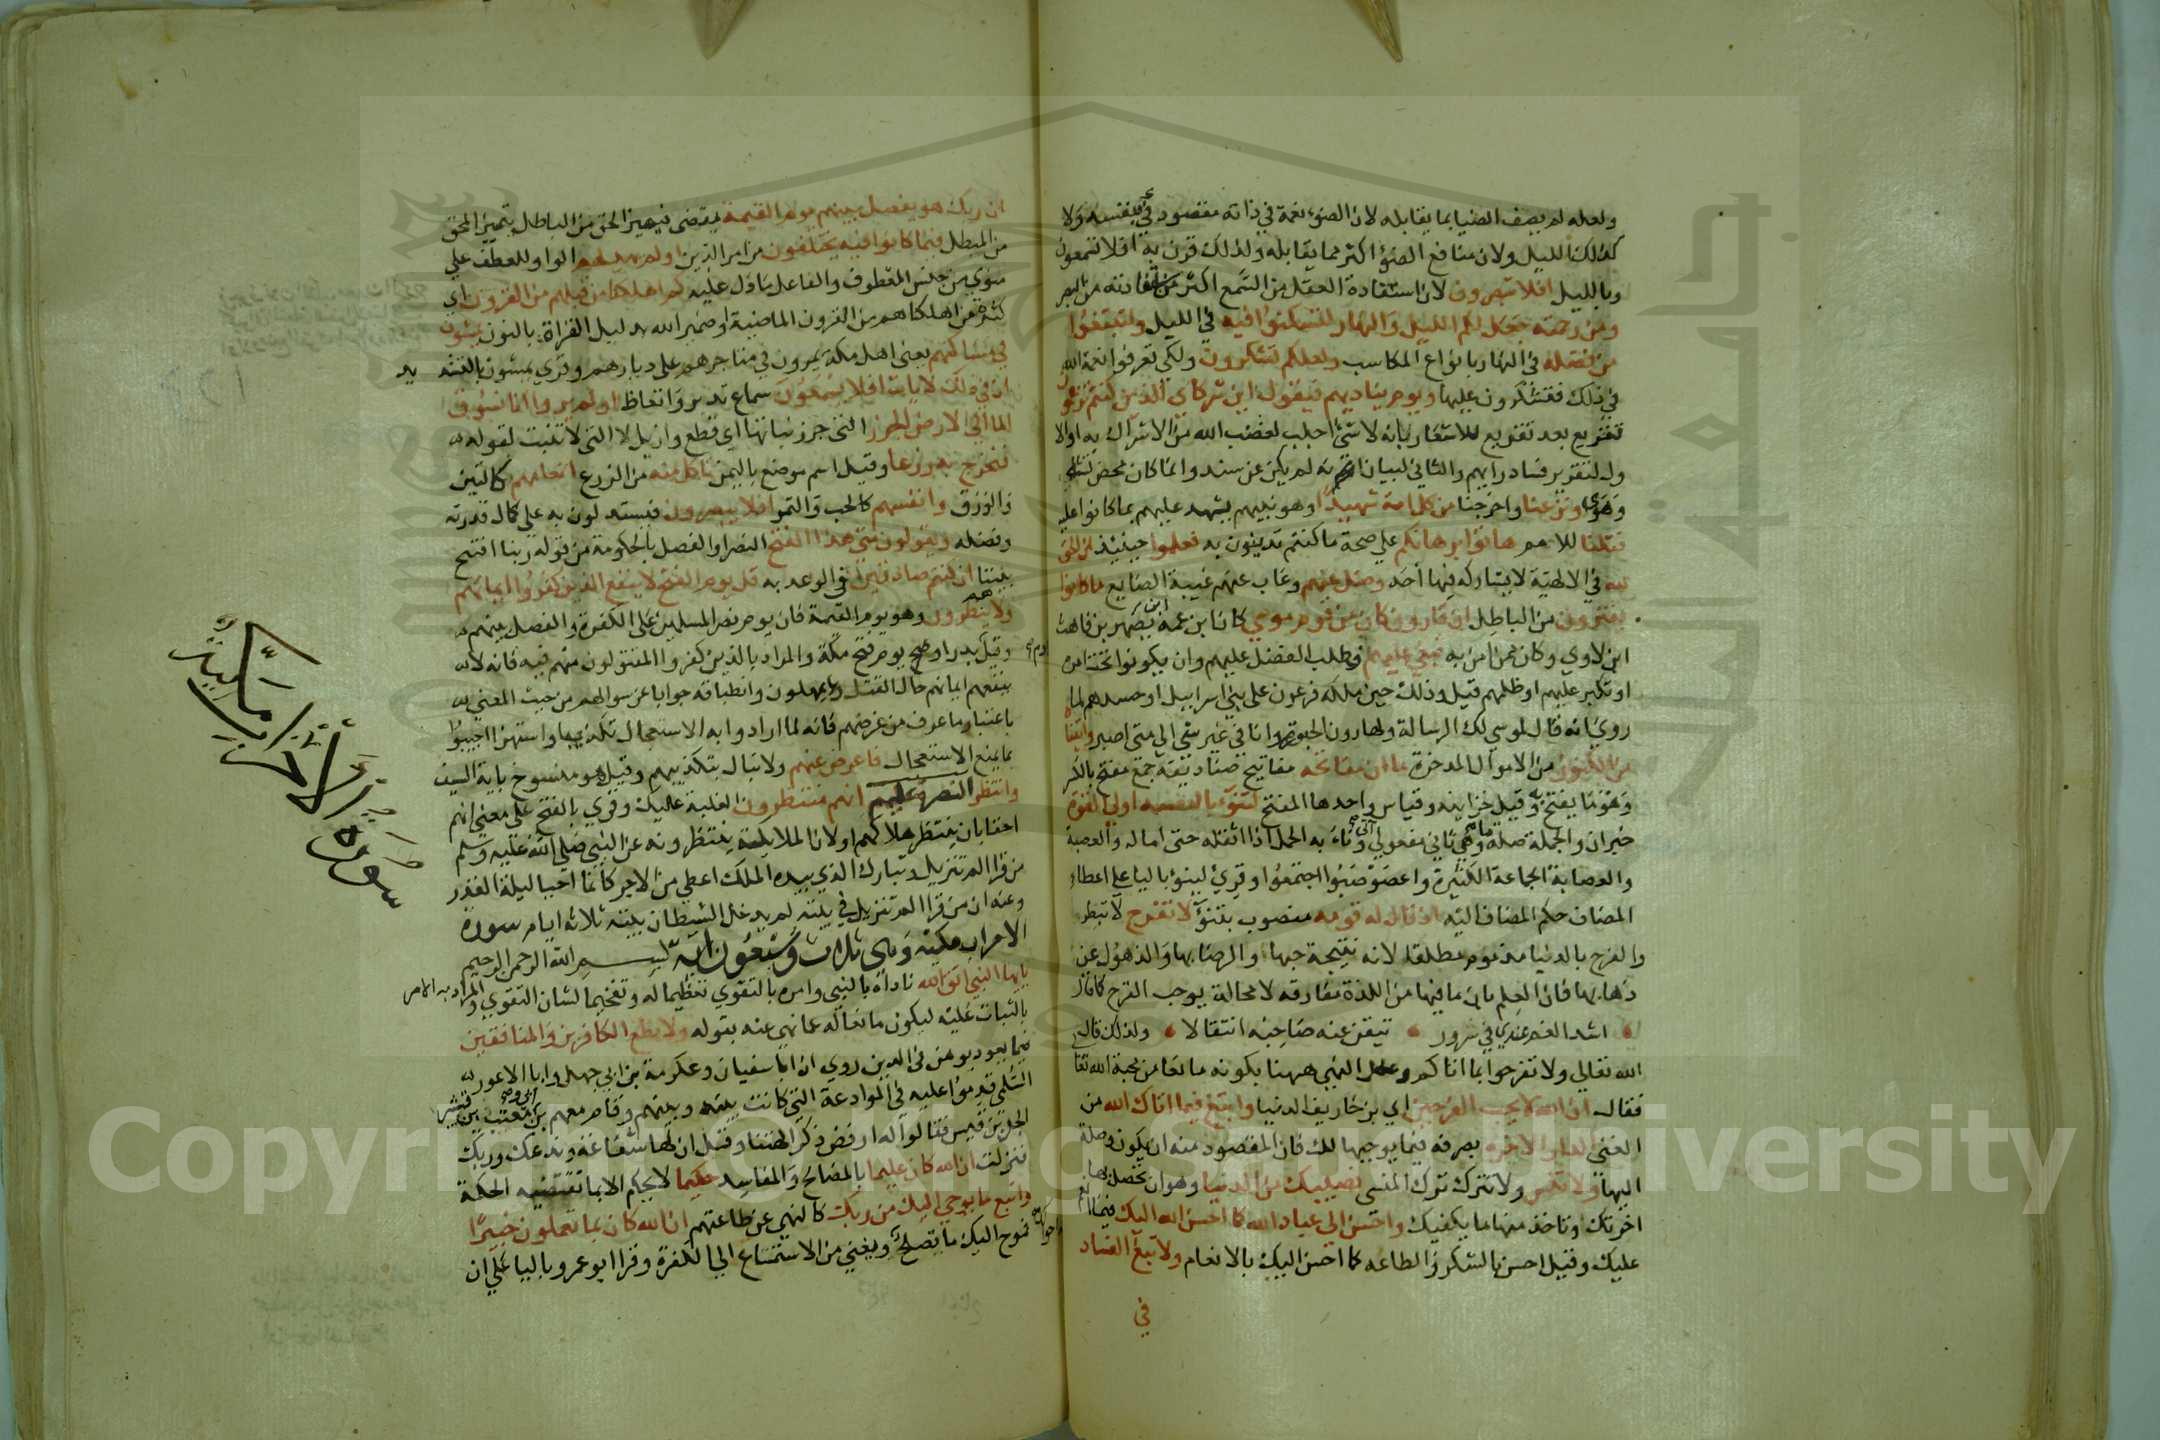 ولعله لم يصف الضيا بما يقابله لان الضوء نعمة في ذاته مقصود بنفسه ولا
كذلك الليل ولان منافع الضوء اكثر مما يقابله ولذلك قرن به افلا تسمعون
وبالليل افلا تبصرون لان استفادة العقل من السمع اكثر من استفادته من البصر
ومن رحمته جعل لكم الليل والنهار لتسكنوا فيه في الليل ولتبتغوا
من فضله في النهار بانواع المكاسب ولعلكم تشكرون ولكي تعرفوا نعمة الله
في ذلك فتشكرون عليها ويوم يناديهم فيقول اين شركاي الذين كنتم تزعمون
تقريع بعد تقريع للاشعار بانه لا شئ اجلب لغضب الله من الاشراك به او الا
ول لتقرير فساد رايهم والثاني لبيان انه لم يكن عن سند وانما كان محض تشه
وهوى ونزعنا واخرجنا من كل امة شهيدا وهو نبيهم يشهد عليهم بما كانوا عليه
فقلنا للامم هاتوا برهانكم علي صحة ما كنتم تدينون به فعلموا حينئذ ان الحق
لله في الالهية لا يشاركه فيها احد وضل عنهم وغاب عنهم غيبة الضايع ما كانوا
يفترون من الباطل ان قارون كان من قوم موسي كان ابن عمه يصهر بن قاهث
ابن لاوي وكان ممن امن به فبغي عليهم فطلب الفضل عليهم وان يكونوا تحت امره
او تكبر عليهم او ظلمهم قيل وذلك حين ملكه فرعون علي بني اسراييل او حسدهم لما
روي انه قال لموسي لك الرسالة ولهارون الحبورة وانا في غير شي الي متي اصبر واتيناه
من الكنوز من الاموال المدخرة ما ان مفاتحه مفاتيح صناديقه جمع مفتح بالكسر
وهو ما يفتح به وقيل خزاينه وقياس واحدها المفتح لتنوء بالعصبة اولي القوة
خبر ان والجملة صلة ما وهي ثاني مفعولي اتي وناء به الحمل اذا اثقله حتى اماله والعصبة
والعصابة الجماعة الكثيرة واعصوصبوا اجتمعوا وقرئ لينوء باليا علي اعطاء
المضاف حكم المضاف اليه اذ قال له قومه منصوب بتنوء لا تفرح لا تبطر
والفرح بالدنيا مذموم مطلقا لانه نتيجة حبها والرضا بها والذهول عن
ذهابها فان العلم بان ما فيها من اللذة مفارقه لا محالة يوجب الترح كما قال
اشد الغم عندي في سرور تيقن عنه صاحبه انتقالا ولذلك قال
الله تعالي ولا تفرحوا بما اتاكم وعلل النهي ههنا بكونه مانعا من محبة الله تعا
فقال ان الله لا يحب الفرحين اي بزخاريف الدنيا وابتغ فيما اتاك الله من
الغني الدار الاخرة بصرفه فيما يوجبها لك فان المقصود منه ان يكون وصلة
اليها ولا تنس ولا تترك ترك المنسي نصيبك من الدنيا وهو ان تحصل بها
اخرتك وتاخذ منها ما يكفيك واحسن الي عباد الله كما احسن الله اليك فيما انعم
عليك وقيل احسن بالشكر والطاعه كما احسن اليك بالانعام ولا تبغ الفساد
في
ان ربك هو يفصل بينهم يوم القيمة يقضي فيميز الحق من الباطل بتمييز المحق
من المبطل فيما كانوا فيه يختلفون من امر الدين اولم يهد لهم الواو للعطف علي
منوي من جنس المعطوف والفاعل ما دل عليه كم اهلكنا من قبلهم من القرون اي
كثرة من اهلكناهم من القرون الماضية او ضمير الله بدليل القراة بالنون يمشون
في مساكنهم يعني اهل مكة يمرون في متاجرهم علي ديارهم وقري يمشون بالتشديد
ان في ذلك لايات افلا يسمعون سماع تدبر واتعاظ اولم يروا انا نسوق
الما الي الارض الجرز التي جرز نباتها اي قطع وازيل لا التي لا تنبت لقوله
فنخرج به زرعا وقيل اسم موضع باليمن تاكل منه من الزرع انعامهم كالتبن
والورق وانفسهم كالحب والتمر افلا يبصرون فيستدلون به علي كمال قدرته
وفضله ويقولون متي هذا الفتح النصر او الفصل بالحكومة من قوله ربنا افتح
بيننا ان كنتم صادقين في الوعد به قل يوم الفتح لا ينفع الذين كفروا ايمانهم
ولا هم ينظرون وهو يوم القيمة فان يوم نصر المسلمين علي الكفرة والفصل بينهم
وقيل يوم بدر او يوم فتح مكة والمراد بالذين كفروا المقتولون منهم فيه فانه لا
ينفعهم ايمانهم حال القتل ولا يمهلون وانطباقه جوابا عن سوالهم من حيث المعني
باعتبار ما عرف من غرضهم فانه لما ارادوا به الاستعجال تكذيبا واستهزا اجيبوا
بما يمنع الاستعجال فاعرض عنهم ولا تبال بتكذيبهم وقيل هو منسوخ باية السيف
وانتظر النصرة عليهم انهم منتظرون الغلبة عليك وقري بالفتح علي معني انهم
احقا بان ينتظر هلاكهم او لان الملايكة ينتظرونه عن النبي صلي الله عليه وسلم
من قرا الم تنزيل وتبارك الذي بيده الملك اعطي من الاجر كانما احيا ليلة القدر
وعنه ان من قرا الم تنزيل في بيته لم يدخل الشيطان بيته ثلاثه ايام سورة
الاحزاب مكية وهي ثلاث وسبعون اية بسم الله الرحمن الرحيم
يايها النبي اتق الله ناداه بالنبي وامره بالتقوي تعظيما له وتفخيما لشان التقوي والمراد به الامر
بالثبات عليه ليكون مانعا له عما نهي عنه بقوله ولا تطع الكافرين والمنافقين
فيما يعود بوهن في الدين روي ان ابا سفيان وعكرمة بن ابي جهل وابا الاعور
السلمي قدموا عليه في الموادعة التي كانت بينه وبينهم وقام معهم بن ابي ومعتب بن قشير
الجد بن قيس فقالوا له ارفض ذكر الهتنا وقل ان لها شفاعة وندعك وربك
فنزلت ان الله كان عليما بالمصالح والمفاسد حكيما لا يحكم الا بما تقتضيه الحكمة
واتبع ما يوحي اليك من ربك كالنهي عن طاعتهم ان الله كان بما تعملون خبيرا
فموح اليك ما يصلح ويغني من الاستماع الي الكفرة وقرا ابو عمرو باليا علي ان
سورة الاحزاب مكية
Copyright © King Saud University